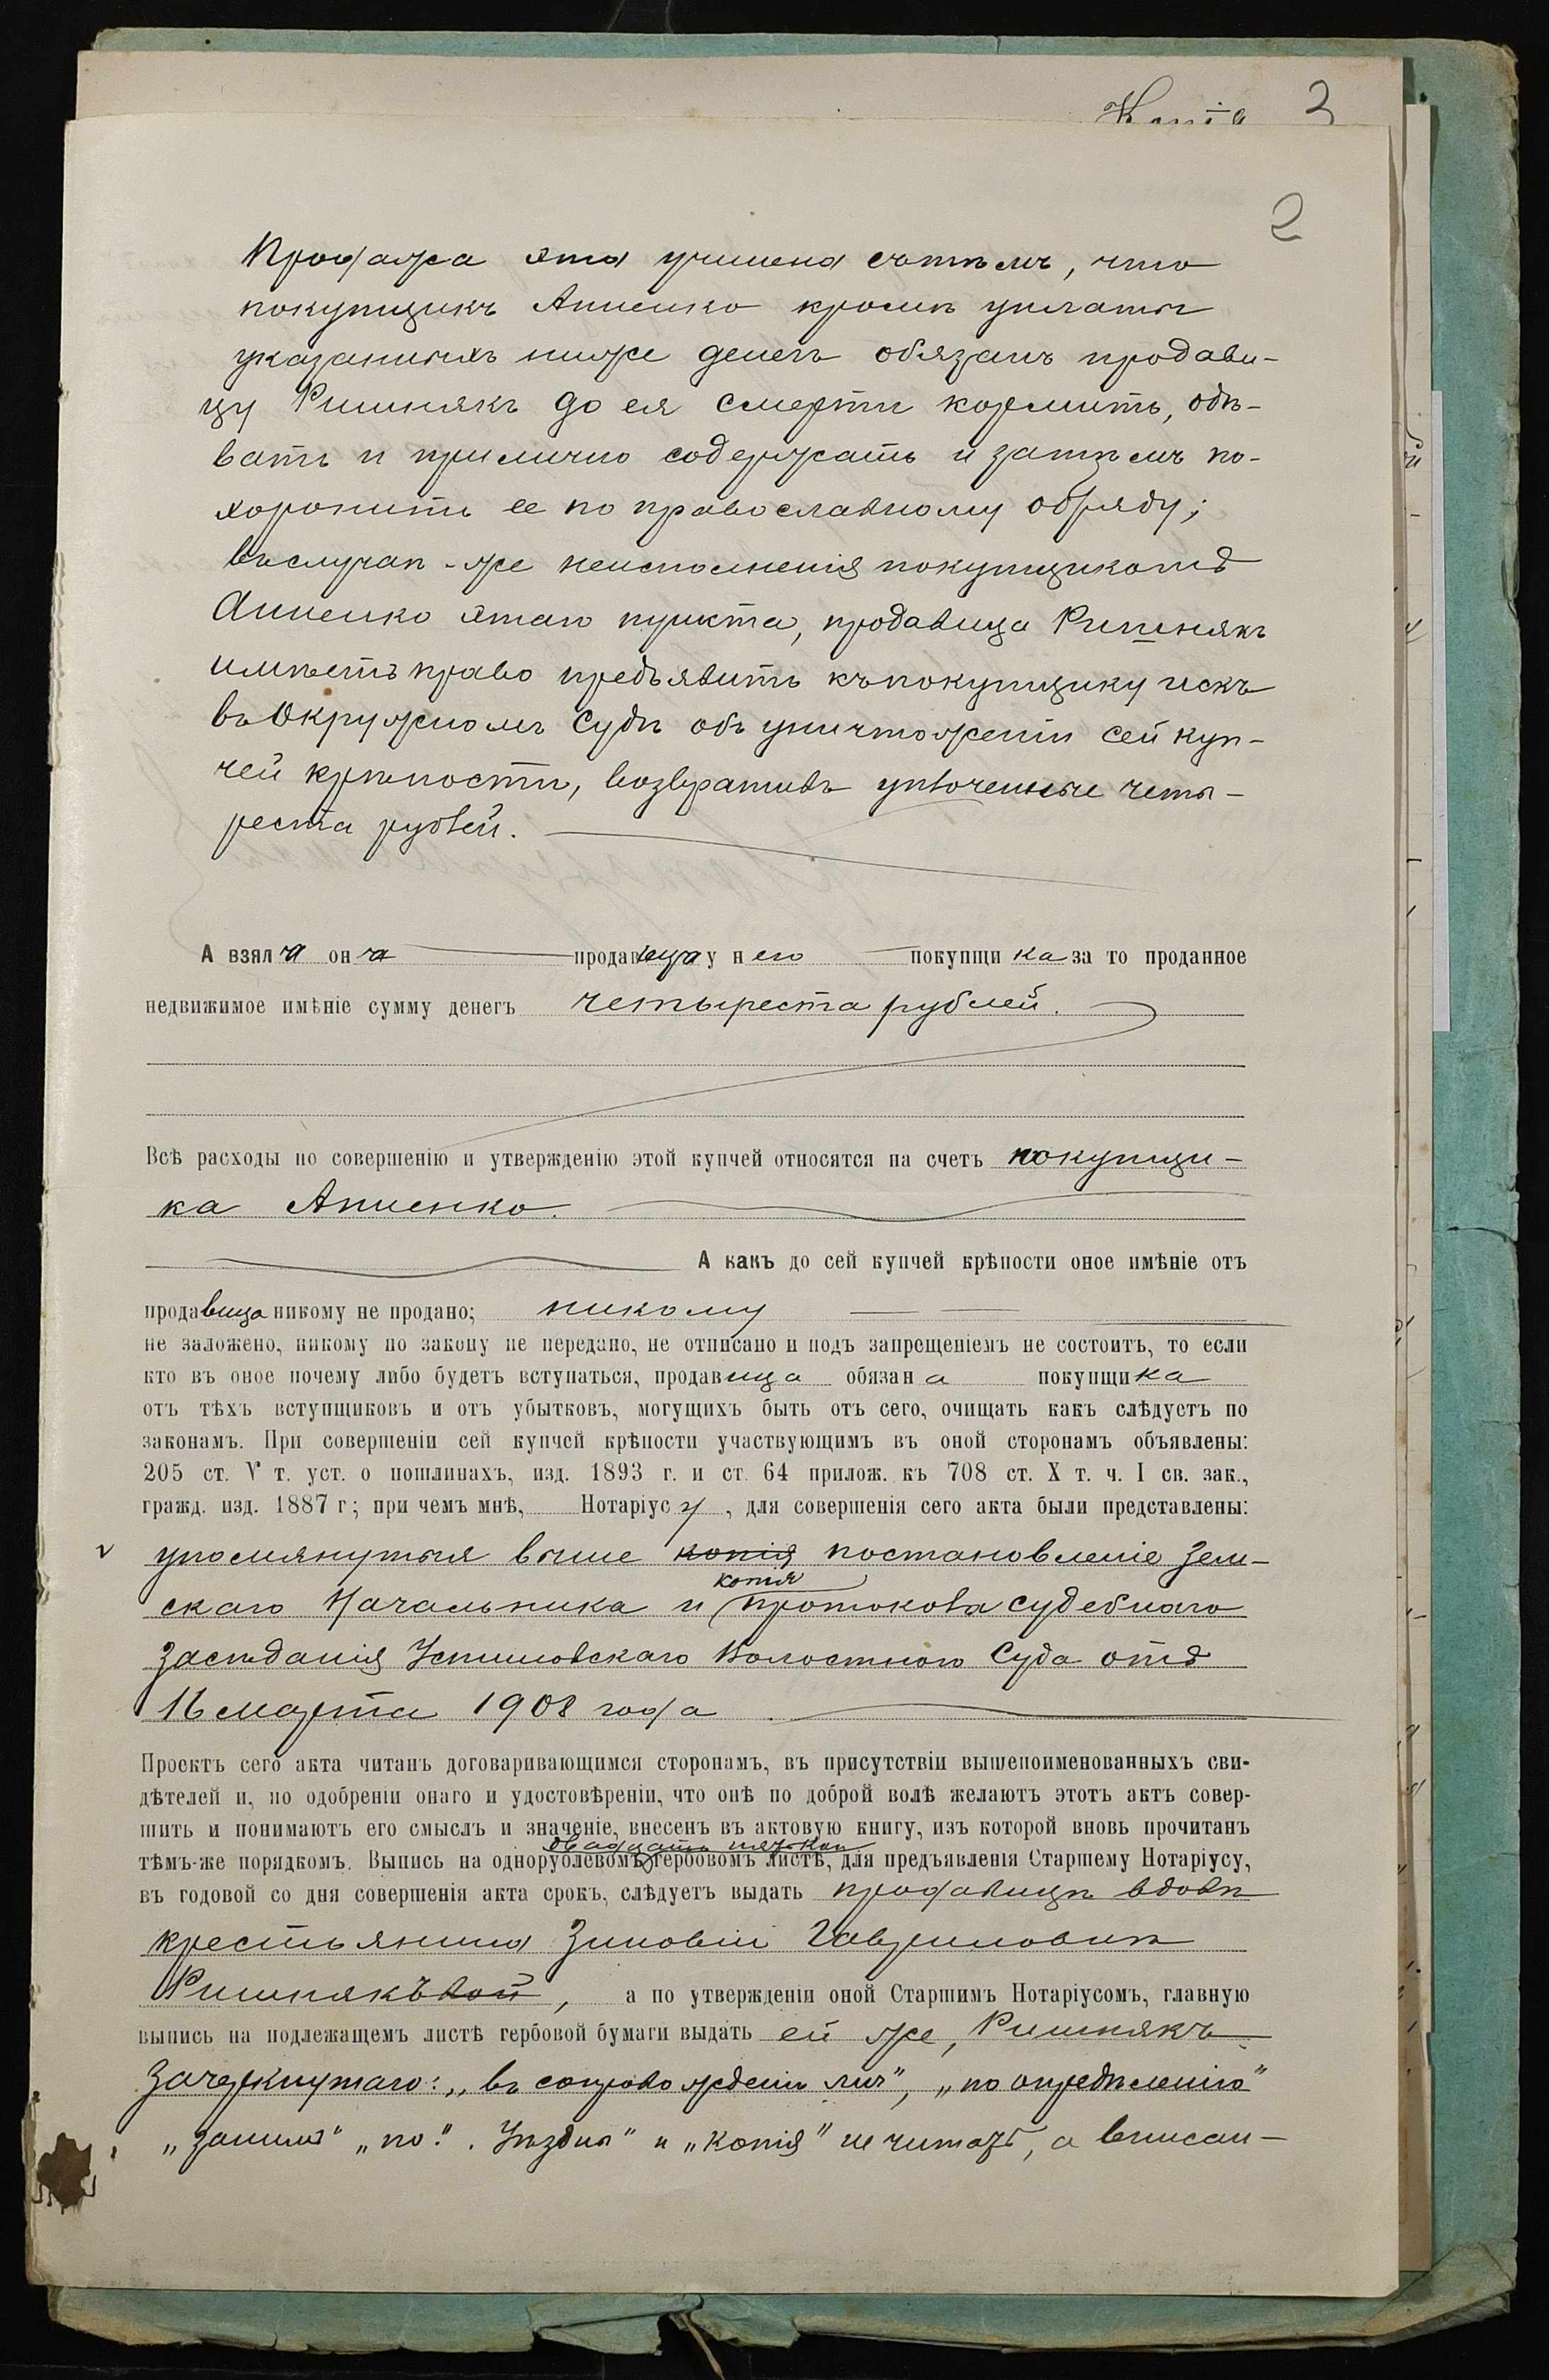 Копія 3
2
Продажа эта учинена съ тѣмъ, что
покупщикъ Апненко кромѣ уплаты
указанныхъ ниже денегъ обязанъ продави-
цу Ришнякъ до ея смерти кормить, одѣ-
вать и прилично содержать и затѣмъ по-
хоронить ее по православному обряду;
въ случаѣ-же неисполненія покупщикомъ
Апненко этаго пункта, продавица Ришнякъ
имѣетъ право предъявить къ покупщику искъ
въ Окружномъ Судѣ объ уничтоженіи сей куп-
чей крѣпости, возвративъ уплоченные четы-
реста рублей.
А взяла она продавица у него покупщика за то проданное
недвижимое имѣніе сумму денегъ четыреста рублей.
Всѣ расходы по совершенію и утвержденію этой купчей относятся на счетъ покупщи-
ка Апненко.
А какъ до сей купчей крѣпости оное имѣніе отъ
продавица никому не продано; никому
не заложено, никому по закону не передано, не отписано и подъ запрещеніемъ не состоитъ, то если
кто въ оное почему либо будетъ вступаться, продавица обязана покупщика
отъ тѣхъ вступщиковъ и отъ убытковъ, могущихъ быть отъ сего, очищать какъ слѣдуетъ по
законамъ. При совершеніи сей купчей крѣпости участвующимъ въ оной сторонамъ объявлены:
205 ст. V т. уст. о пошлинахъ, изд. 1893 г. и ст. 64 прилож. къ 708 ст. X т. ч. I св. зак.,
гражд. изд. 1887 г; при чемъ мнѣ, Нотаріусу, для совершенія сего акта были представлены:
упомянутыя выше копія постановленіе Зем-
копія
скаго Начальника и протокола судебнаго
засѣданія Устиловскаго Волостного Суда отъ
16 марта 1908 года.
Проектъ сего акта читанъ договаривающимся сторонамъ, въ присутствіи вышепоименованныхъ сви-
дѣтелей и, по одобреніи онаго и удостовѣреніи, что онѣ по доброй волѣ желаютъ этотъ актъ совер-
шить и понимаютъ его смыслъ и значеніе, внесенъ въ актовую книгу, изъ которой вновь прочитанъ
двадцати пяти коп
тѣмъ-же порядкомъ. Выпись на однорублевомъ гербовомъ листѣ, для предъявленія Старшему Нотаріусу,
въ годовой со дня совершенія акта срокъ, слѣдуетъ выдать продавицѣ вдовѣ
крестьянина Зиновіи Гавриловнѣ
Ришнякъвой, а по утвержденіи оной Старшимъ Нотаріусомъ, главную
выпись на подлежащемъ листѣ гербовой бумаги выдать ей же, Ришнякъ
Зачеркнутаго: „въ сопровожденіи лич", „по опредѣленію"
„ "по". Уѣздна" и „копія" не читать, а вписан-